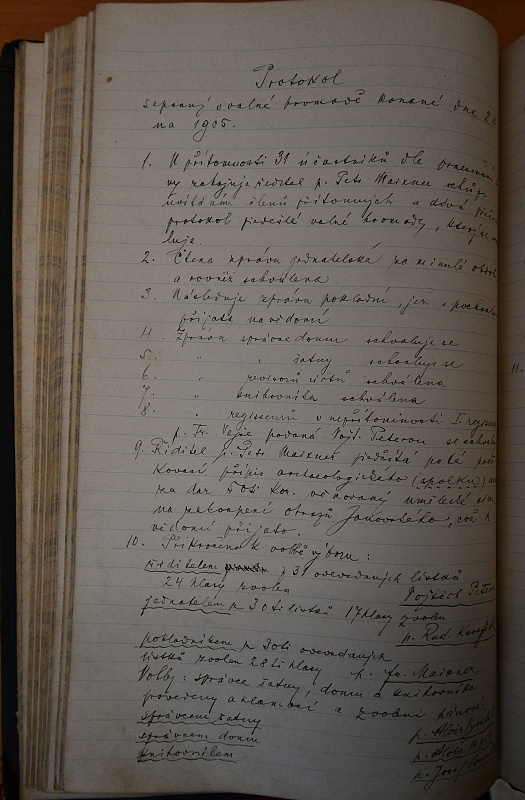 Protokol
sepsaný o valné hromadě konané dne 2
na 1905.
1. U přítomnosti 31 účastníků dle
zahajuje ředitel p. Petr Maixner schůzi
uvítáním členů přítomných a dává
protokol předešlé valné hromady, který se
luje.
2. Čtena zpráva jednatelská za minulé
a rovněž schválena
3. Následuje zpráva pokladní, jež s
přijata na vědomí
4. Zpráva správce domu schvaluje se
5. " " šatny schvaluje se
6. " revisorů účtů schválena
7. " knihovníka schválena
8. " regisseurů v nepřítomnosti I.
p. Fr. Vejse podaná Vojt. Peterou se
9. Ředitel p. Petr Maixner předčítá poté
kovací přípis archaeologického (spolku)
za dar 50ti kor. věnovaný umělecké
na zakoupení obrazů Janovského, což k
vědomí přijato.
10. Přikročeno k volbě výboru:
ředitelem z 31 odevzdaných lístků
24 hlasy zvolen Vojtěch
jednatelem z 30ti lístků 17 hlasy zvolen
p. Rud.
pokladníkem z 30ti odevzdaných
lístků zvolen 28ti hlasy p. Fr. Maixner
Volby: správce šatny, domu a knihovníka
provedeny aklamací a zvoleni pánové:
správcem šatny p. Alois
správcem domu p. Alois
knihovníkem p. Josef
11.